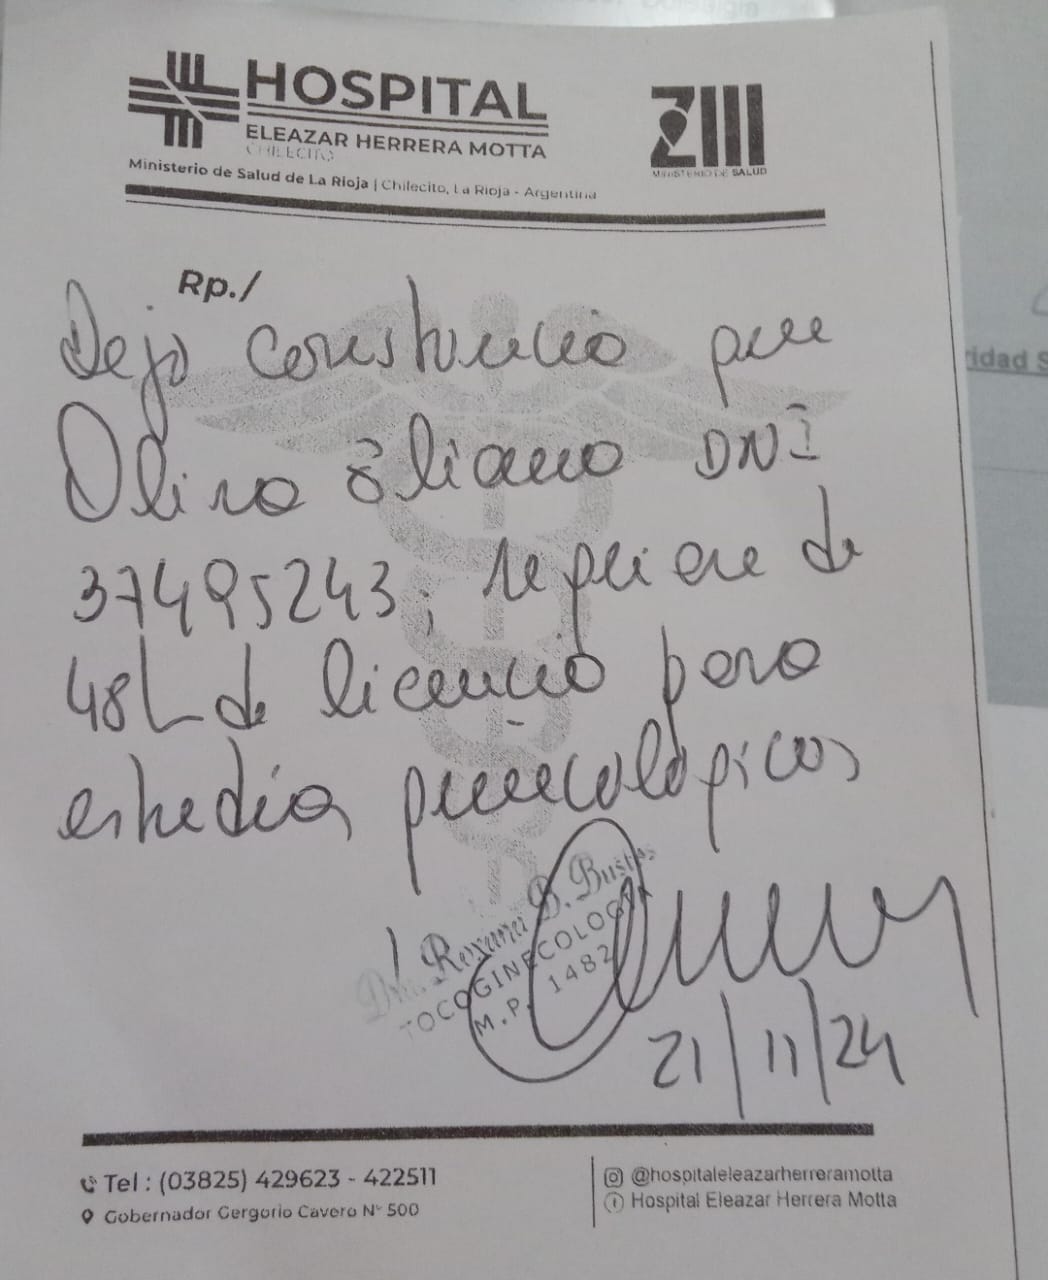 Dorsalgia
HOSPITAL
ELEAZAR HERRERA MOTTA
CHILECITO
Ministerio de Salud de La Rioja | Chilecito, La Rioja - Argentina
ZIII
MINISTERIO DE SALUD
Rp./
Dejo constancia que
Oliva Eliana DNI
37495243, requiere de
48h de licencia para
estudios ginecológicos
Dra. Roxana D. Bustos
TOCOGINECOLOGIA
M.P. 1482
21/11/24
ridad S
Tel : (03825) 429623 - 422511
Gobernador Gergorio Cavero N° 500
@hospitaleleazarherreramotta
Hospital Eleazar Herrera Motta